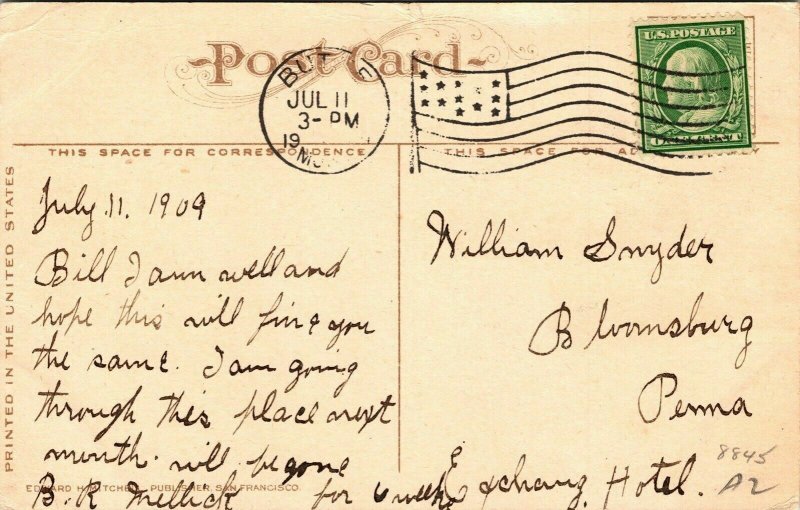 Post Card
U.S. POSTAGE
BUT
JUL 11
3- PM
19
THIS SPACE FOR CORRESPONDENCE
THIS SPACE FOR
PRINTED IN THE UNITED STATES
July. 11. 1909
Bill I am well and
hope this will fine you
the same. I am going
through this place next
month. will be gone
for 6 weeks
B. R. Mellick
EDWARD H. MITCHELL, PUBLISHER, SAN FRANCISCO.
William Snyder
Bloomsburg
Penna
Exchang Hotel.
8845
A2